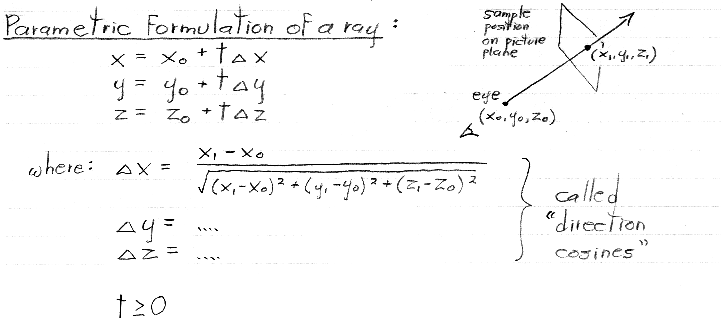 Parametric Formulation of a ray :
x = x₀ + t△x
y = y₀ + t△y
z = z₀ + t△z
sample
position
on picture
plane
(x₁, y₁, z₁)
eye
(x₀, y₀, z₀)
where: △x = x₁ - x₀ / √(x₁-x₀)² + (y₁-y₀)² + (z₁-z₀)²
△y = ....
△z = ....
called
"direction
cosines"
t ≥ 0